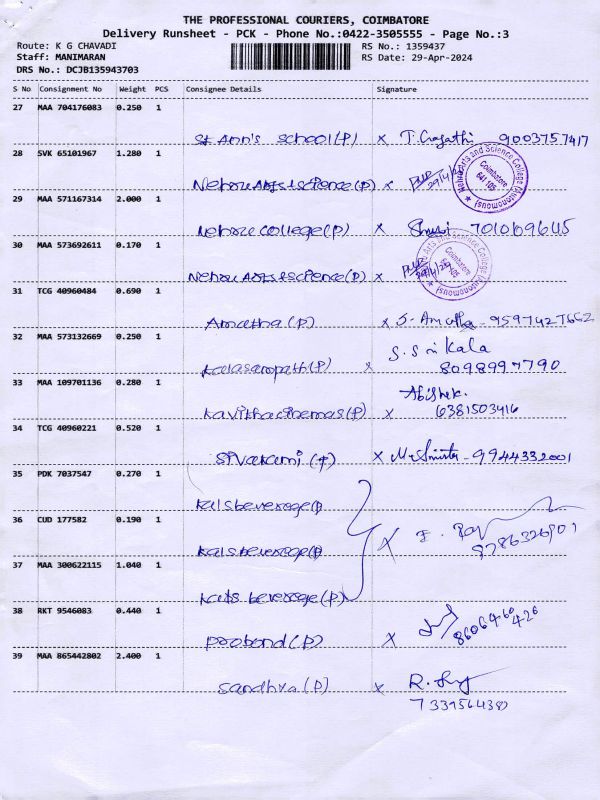 THE PROFESSIONAL COURIERS, COIMBATORE
Delivery Runsheet - PCK - Phone No.:0422-3505555 - Page No.:3
Route: K G CHAVADI
RS No.: 1359437
Staff: MANIMARAN
RS Date: 29-Apr-2024
DRS No.: DCJB135943703
S No Consignment No Weight PCS Consignee Details Signature
27 MAA 704176083 0.250 1
St Ann's School (P) x 9003757417
28 SVK 65101967 1.280 1
Nehru Arts & science (P) x
Nehru Arts and Science College (Autonomous) Coimbatore 641 105
29 MAA 571167314 2.000 1
Nehru college (P) x
30 MAA 573692611 0.170 1
Nehru Arts & science (P) x
Arts and Science College (Autonomous) Coimbatore 641 105
31 TCG 40960484 0.690 1
Amutha (P) x S. Amutha - 9597427662
32 MAA 573132669 0.250 1
S. Srikala
x 8098997790
33 MAA 109701136 0.280 1
Abishek.
Kavitha cinemas (P) x 6381503416
34 TCG 40960221 0.520 1
Sivakami (P) x 9944332001
35 PDK 7037547 0.270 1
kals beverage (P)
36 CUD 177582 0.190 1
kals beverage (P) x
37 MAA 300622115 1.040 1
kals beverage (P)
38 RKT 9546083 0.440 1
probond (P) x
39 MAA 865442802 2.400 1
Sandhya (P) x